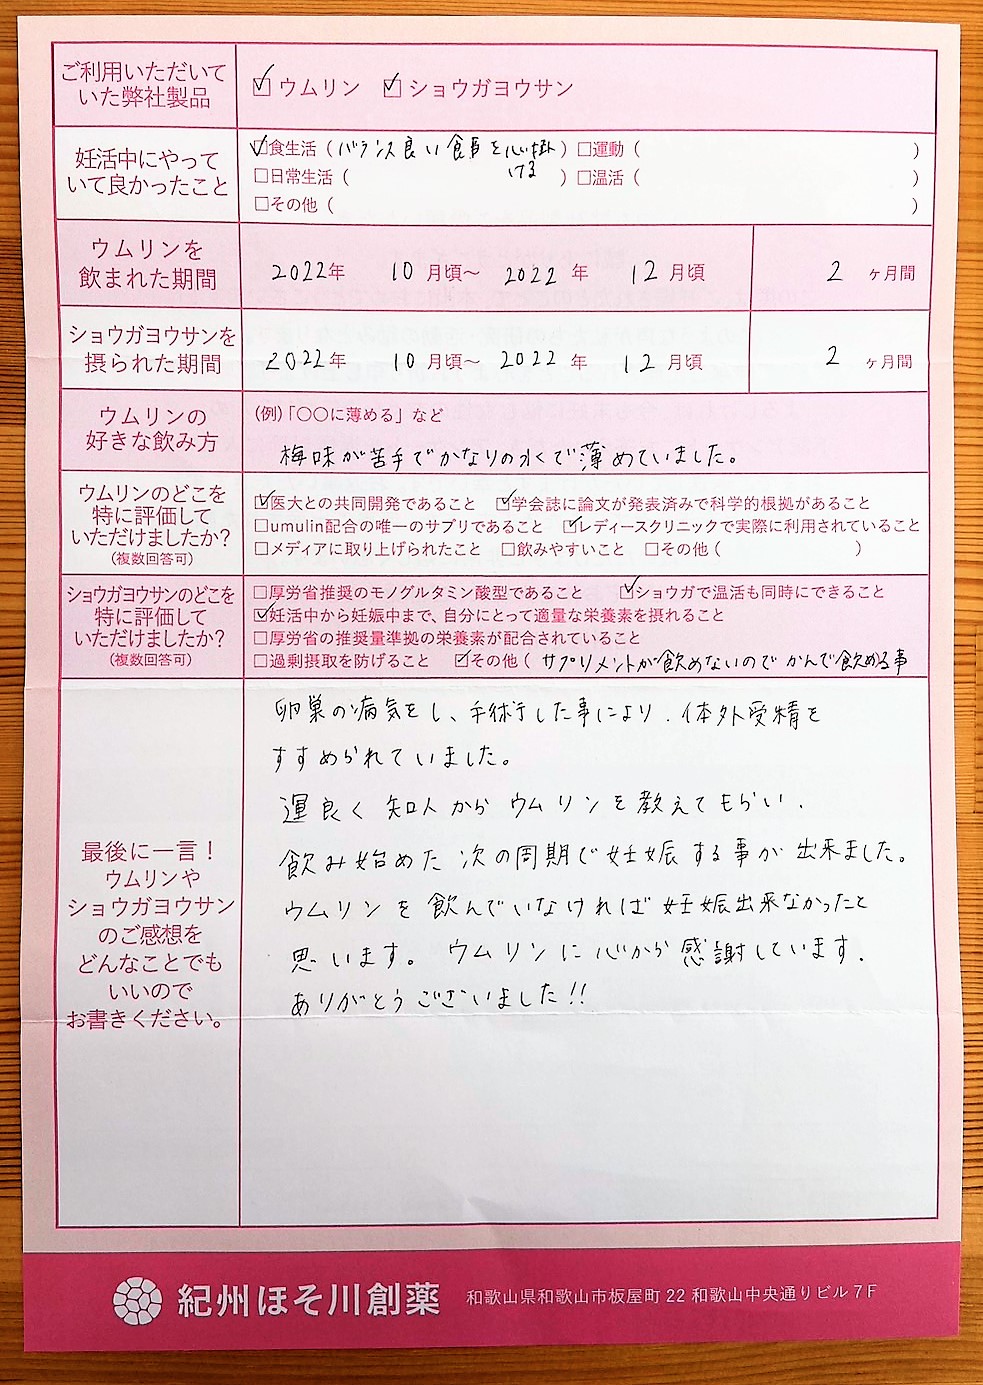 ご利用いただいて
いた弊社製品
☑ウムリン ☑ショウガヨウサン
妊活中にやって
いて良かったこと
☑食生活（バランス良い食事を心掛ける） □運動（ ）
□日常生活（ ） □温活（ ）
□その他（ ）
ウムリンを
飲まれた期間
2022年 10月頃〜 2022年 12月頃 2ヶ月間
ショウガヨウサンを
摂られた期間
2022年 10月頃〜 2022年 12月頃 2ヶ月間
ウムリンの
好きな飲み方
（例）「〇〇に薄める」など
梅味が苦手でかなりの水で薄めていました。
ウムリンのどこを
特に評価して
いただけましたか?
（複数回答可）
☑医大との共同開発であること ☑学会誌に論文が発表済みで科学的根拠があること
□umulin配合の唯一のサプリであること ☑レディースクリニックで実際に利用されていること
□メディアに取り上げられたこと □飲みやすいこと □その他（ ）
ショウガヨウサンのどこを
特に評価して
いただけましたか?
（複数回答可）
□厚労省推奨のモノグルタミン酸型であること ☑ショウガで温活も同時にできること
☑妊活中から妊娠中まで、自分にとって適量な栄養素を摂れること
□厚労省の推奨量準拠の栄養素が配合されていること
□過剰摂取を防げること ☑その他（サプリメントが飲めないのでかんで飲める事
最後に一言！
ウムリンや
ショウガヨウサン
のご感想を
どんなことでも
いいので
お書きください。
卵巣の病気をし、手術した事により、体外受精を
すすめられていました。
運良く知人からウムリンを教えてもらい、
飲み始めた次の周期で妊娠する事が出来ました。
ウムリンを飲んでいなければ妊娠出来なかったと
思います。ウムリンに心から感謝しています。
ありがとうございました!!
紀州ほそ川創薬 和歌山県和歌山市板屋町22 和歌山中央通りビル7F